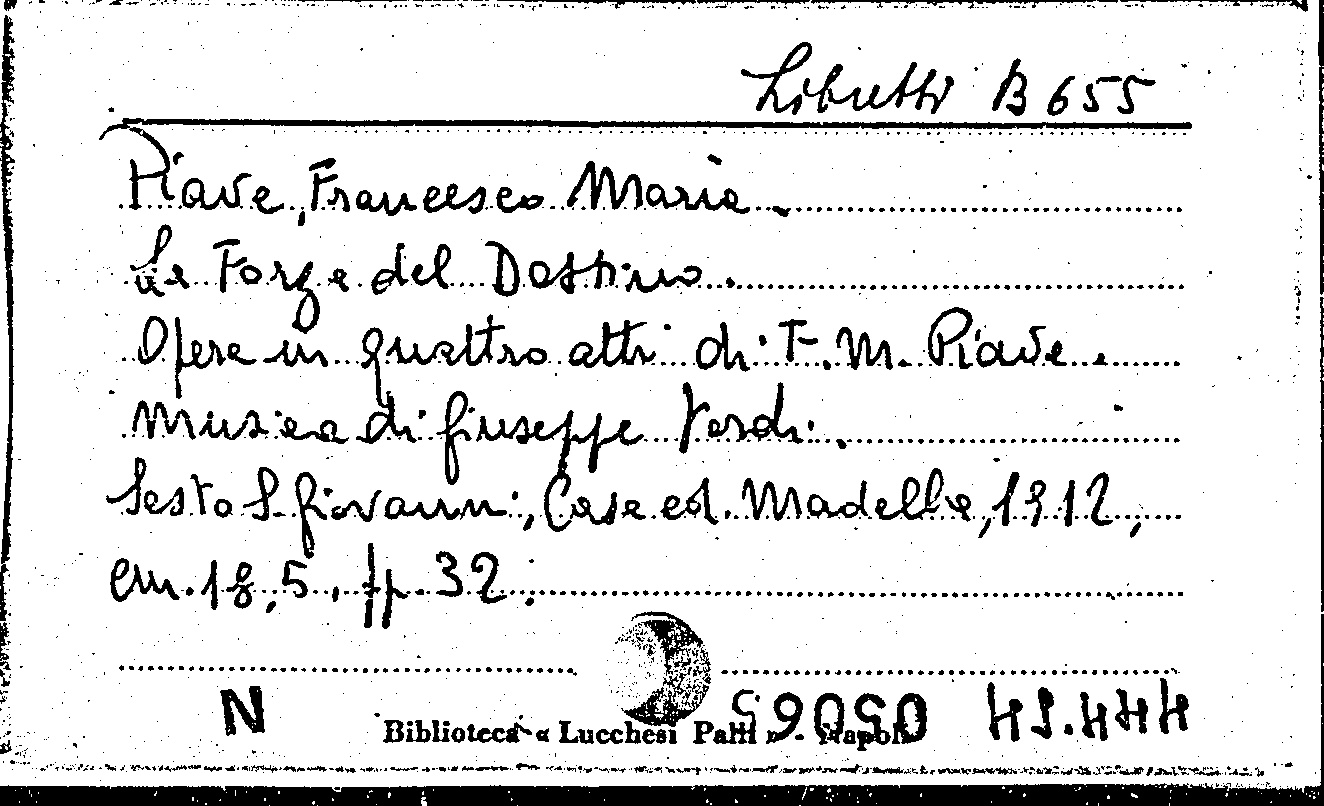 Libretti B 655
Piave, Francesco Maria.
La Forza del Destino.
Opera in quattro atti di F. M. Piave.
Musica di Giuseppe Verdi.
Sesto S. Giovanni, Casa ed. Madella, 1912,
cm. 18,5, pp. 32.
N
Biblioteca « Lucchesi Palli » - Napoli